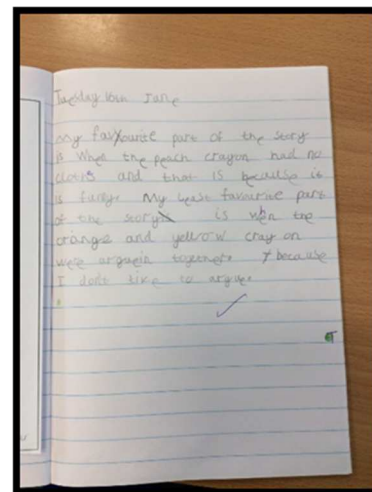 Tuesday 16th June
My favourite part of the story
is when the peach crayon had no
cloths and that is because it
is funny. My least favourite part
of the story is when the
orange and yellow cray on
were arguein together because
I dont like to argue.